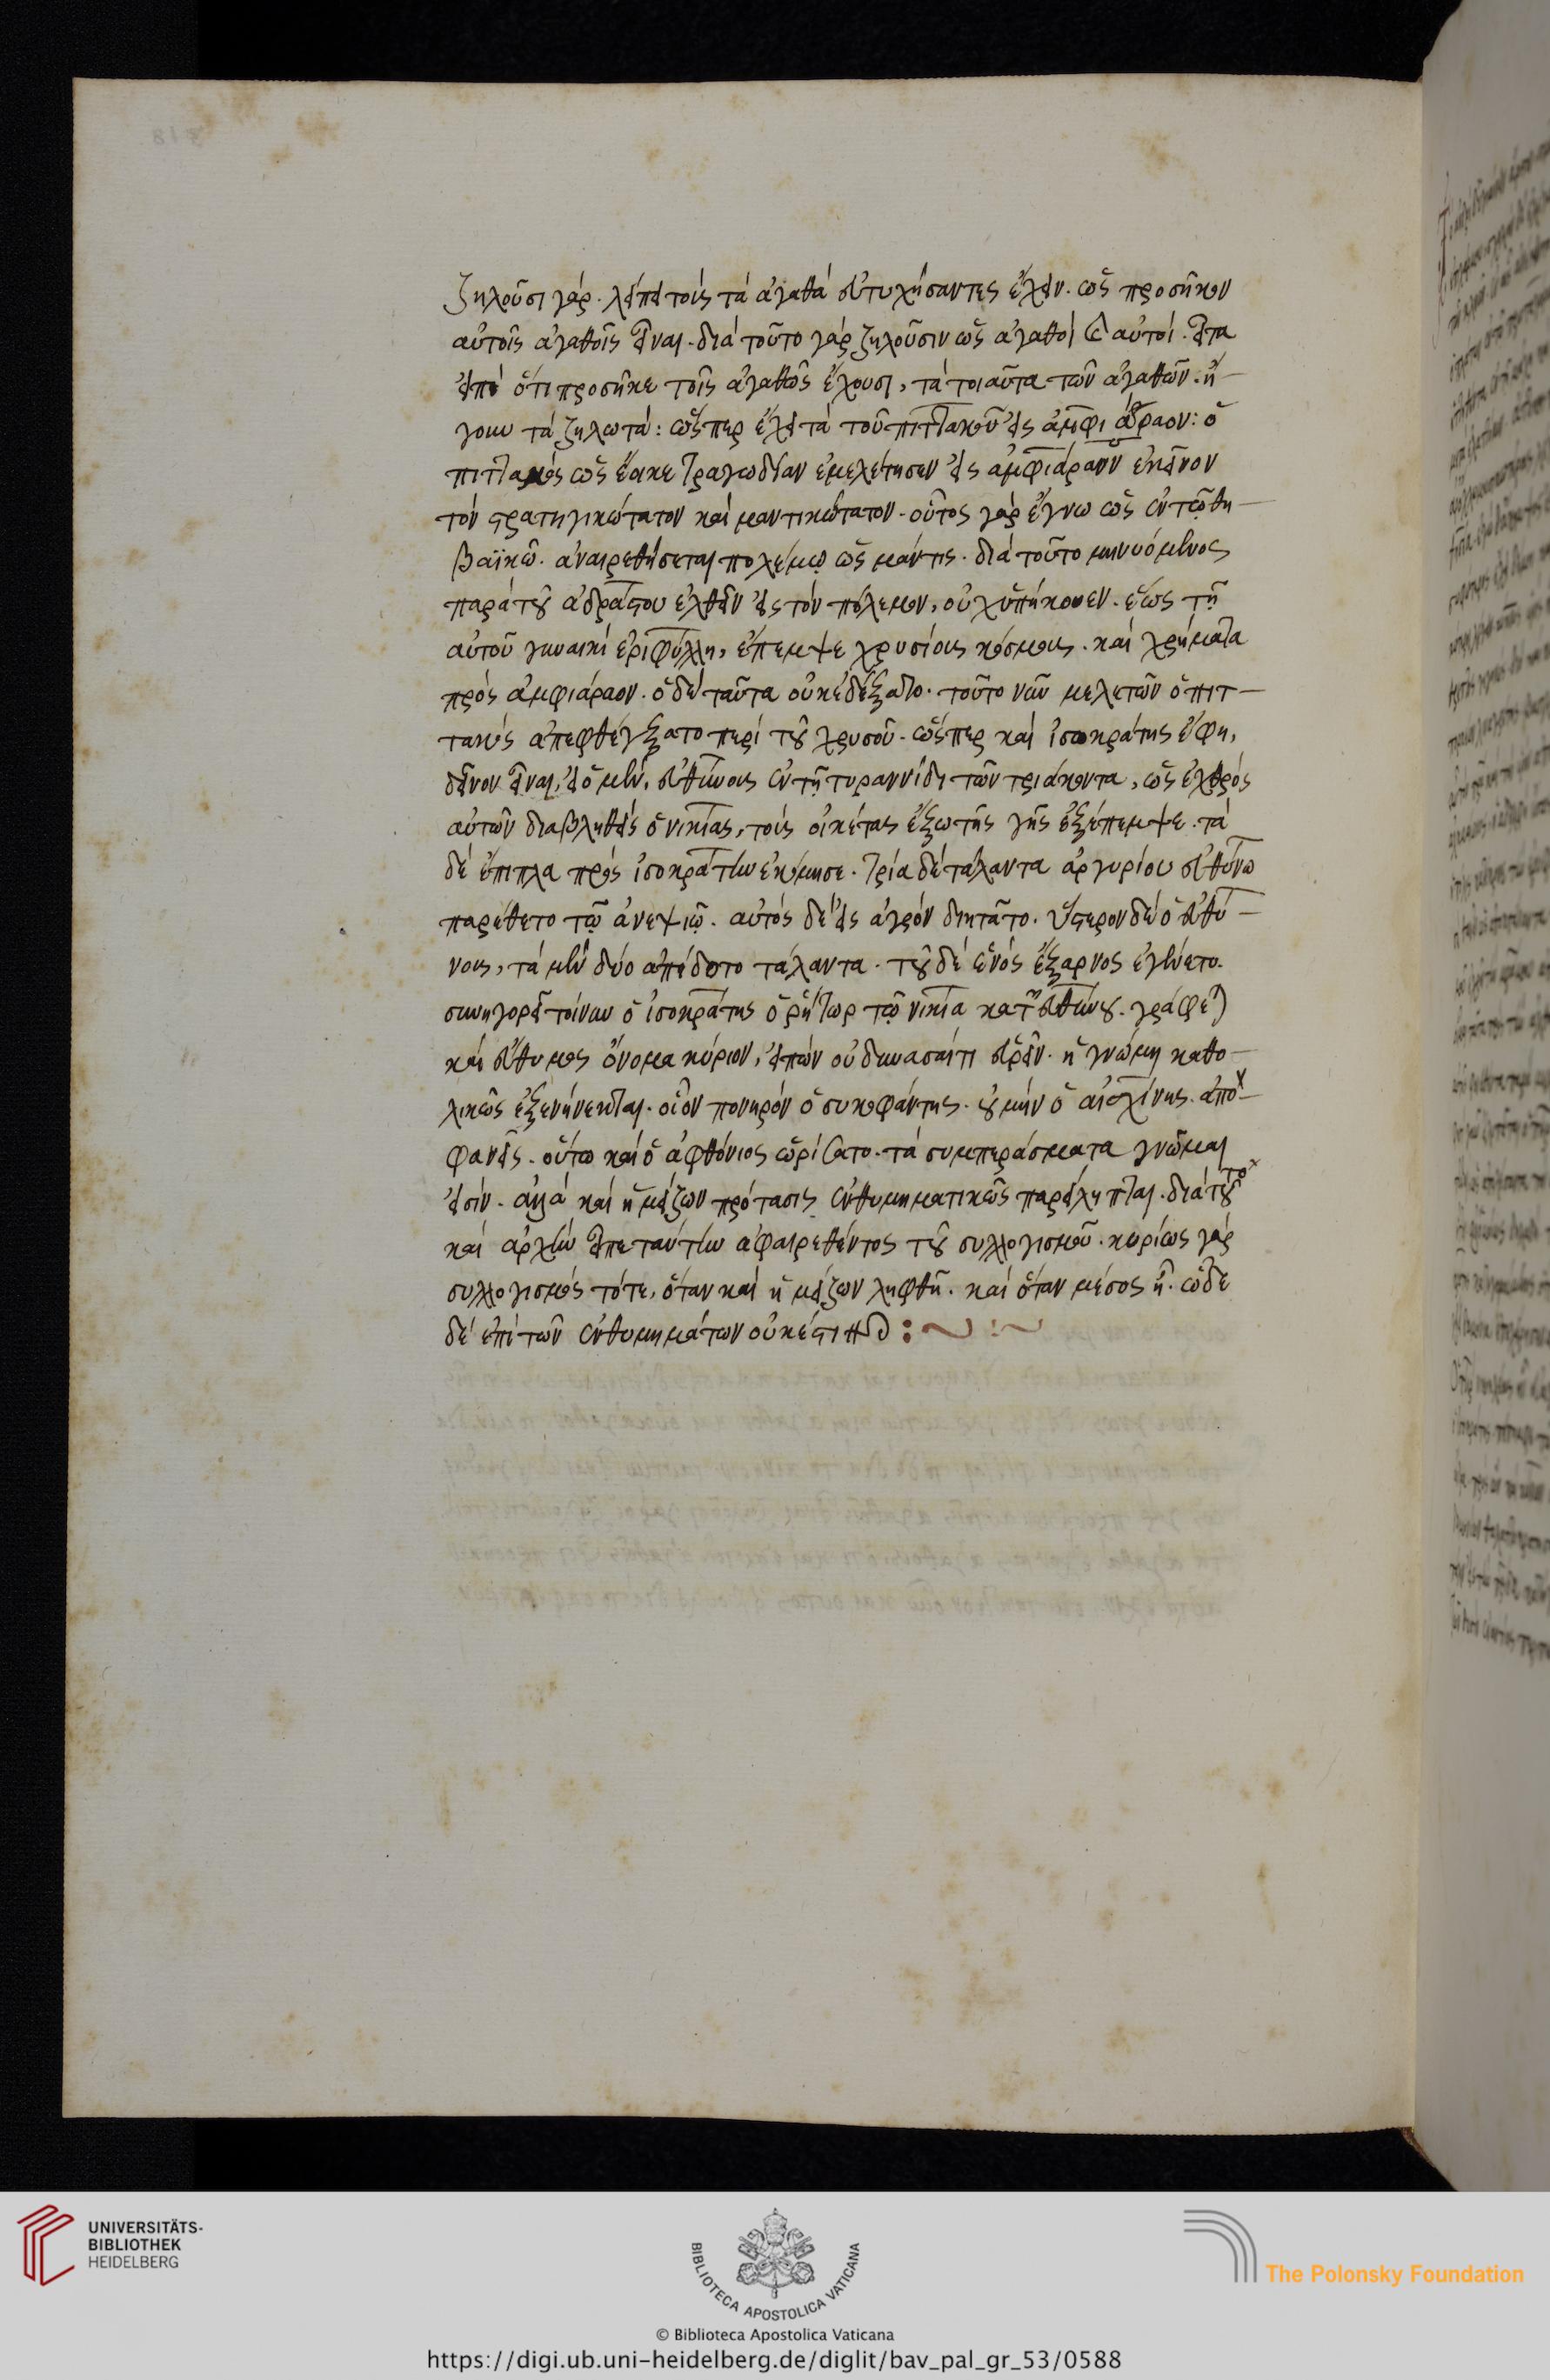 ζηλοῦσι γάρ. λείπει τοὺς τὰ ἀγαθὰ εὐτυχήσαντες ἔχειν. ὡς προσῆκον
αὐτοῖς ἀγαθοῖς εἶναι. διὰ τοῦτο γὰρ ζηλοῦσιν ὡς ἀγαθοὶ καὶ αὐτοί. εἶτα
εἰπὼν ὅτι προσῆκε τοῖς ἀγαθῶς ἔχουσι, τὰ τοιαῦτα τῶν ἀγαθῶν. ἤ-
γουν τὰ ζηλωτά: ὥσπερ ἔχει τὰ τοῦ πιττακοῦ εἰς ἀμφιάραον: ὁ
πιττακὸς ὡς ἔοικε τραγωδίαν ἐμελέτησεν εἰς ἀμφιάραον ἐκεῖνον
τὸν στρατηγικώτατον καὶ μαντικώτατον. οὗτος γὰρ ἔγνω ὡς ἐν τῷ θη-
βαϊκῷ. ἀναιρεθήσεται πολέμῳ ὡς μάντις. διὰ τοῦτο μηνυόμενος
παρὰ τοῦ ἀδράστου ἐλθεῖν εἰς τὸν πόλεμον, οὐχ ὑπήκουεν. ἕως τῇ
αὐτοῦ γυναικὶ ἐριφύλλῃ, ἔπεμψε χρυσίους κόσμους. καὶ χρήματα
πρὸς ἀμφιάραον. ὁ δὲ ταῦτα οὐκ ἐδέξατο. τοῦτο νῦν μελετῶν ὁ πιτ-
τακὸς ἀπεφθέγξατο περὶ τοῦ χρυσοῦ. ὥσπερ καὶ ἰσοκράτης ἔφη,
δεινὸν εἶναι, εἰ ὁ μὲν, εὐθύνους ἐν τῇ τυραννίδι τῶν τριάκοντα, ὡς ἐχθρὸς
αὐτῶν διαβληθεὶς ὁ νικίας, τοὺς οἰκέτας ἔξω τῆς γῆς ἐξέπεμψε. τὰ
δὲ ἔπιπλα πρὸς ἰσοκράτην ἐκόμισε. τρία δὲ τάλαντα ἀργυρίου εὐθύνω
παρέθετο τῷ ἀνεψιῷ. αὐτὸς δὲ εἰς ἀγρὸν διητᾶτο. ὕστερον δὲ ὁ εὐθύ-
νους, τὰ μὲν δύο ἀπέδοτο τάλαντα. τοῦ δὲ ἑνὸς ἔξαρνος ἐγένετο.
συνηγορεῖ τοίνυν ὁ ἰσοκράτης ὁ ῥήτωρ τῷ νικία κατ' εὐθύνου. γράφε)
καὶ εὔθυμος ὄνομα κύριον, εἰπὼν οὐ δυνασαί τι εὑρεῖν. ἡ γνώμη καθο-
λικῶς ἐξενήνεκται. οἷον πονηρὸν ὁ συκοφάντης. οὐ μὴν ὁ αἰσχίνης. ἀπο-
φανεῖς. οὕτω καὶ ὁ ἀφθόνιος ὡρίσατο. τὰ συμπεράσματα γνῶμαι
εἰσίν. ἀλλὰ καὶ ἡ μείζων πρότασις ἐνθυμηματικῶς παρείληπται. διὰ τοῦτο
καὶ ἀρχὴν εἶπε ταύτην ἀφαιρεθέντος τοῦ συλλογισμοῦ. κυρίως γὰρ
συλλογισμὸς τότε, ὅταν καὶ ἡ μείζων ληφθῇ. καὶ ὅταν μέσος ᾖ. ὧδε
δὲ ἐπὶ τῶν ἐνθυμημάτων οὐκέστι
UNIVERSITÄTS-
BIBLIOTHEK
HEIDELBERG
BIBLIOTECA APOSTOLICA VATICANA
The Polonsky Foundation
© Biblioteca Apostolica Vaticana
https://digi.ub.uni-heidelberg.de/diglit/bav_pal_gr_53/0588